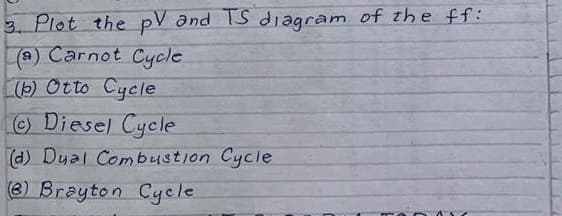 3. Plot the pV and TS diagram of the ff:
(a) Carnot Cycle
(b) Otto Cycle
(c) Diesel Cycle
(d) Dual Combustion Cycle
(e) Brayton Cycle